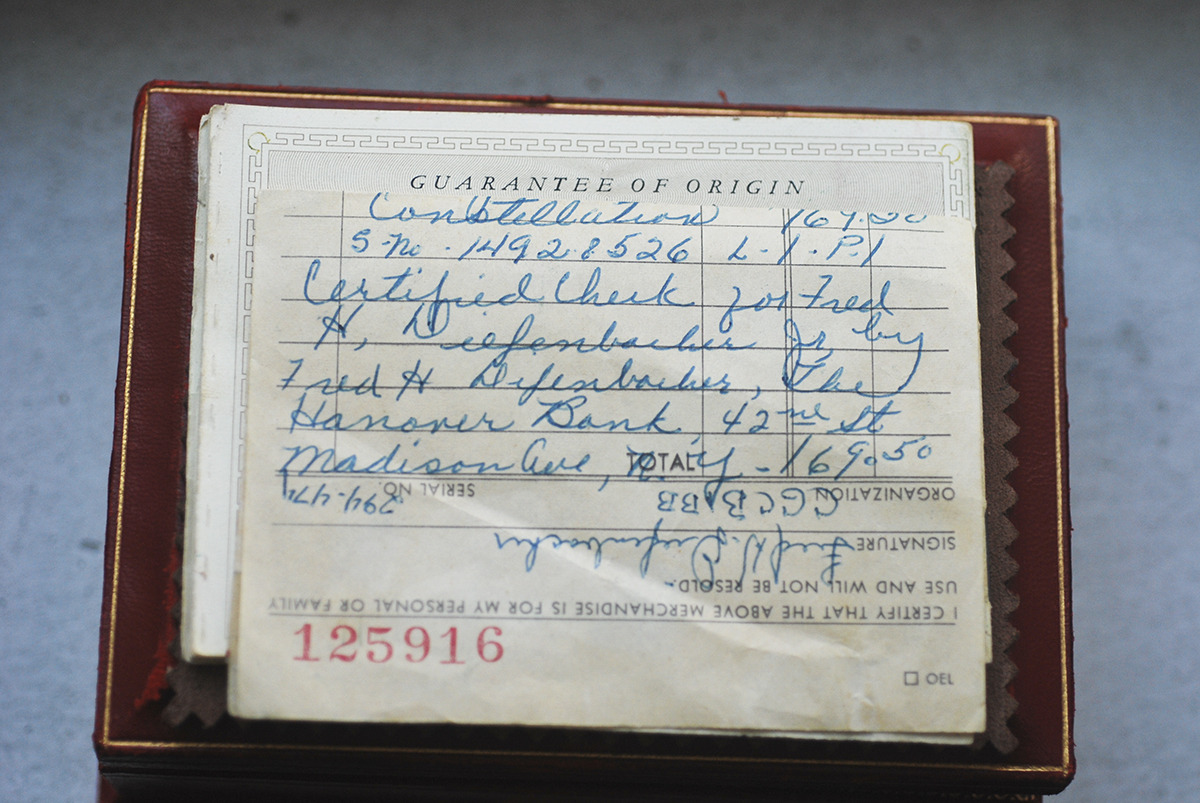 GUARANTEE OF ORIGIN
Constellation 169.50
S-No - 14928526 L-1-P.1
Certified Check for Fred
H, Diefenbacher Jr, by
Fred H Diefenbacher, The
Hanover Bank, 42nd St
Madison Ave, N.Y - 169.50
TOTAL
SERIAL NO.
ORGANIZATION CGC BIBB
SIGNATURE Fred H. Diefenbacher
USE AND WILL NOT BE RESOLD.
I CERTIFY THAT THE ABOVE MERCHANDISE IS FOR MY PERSONAL OR FAMILY
125916
OEL